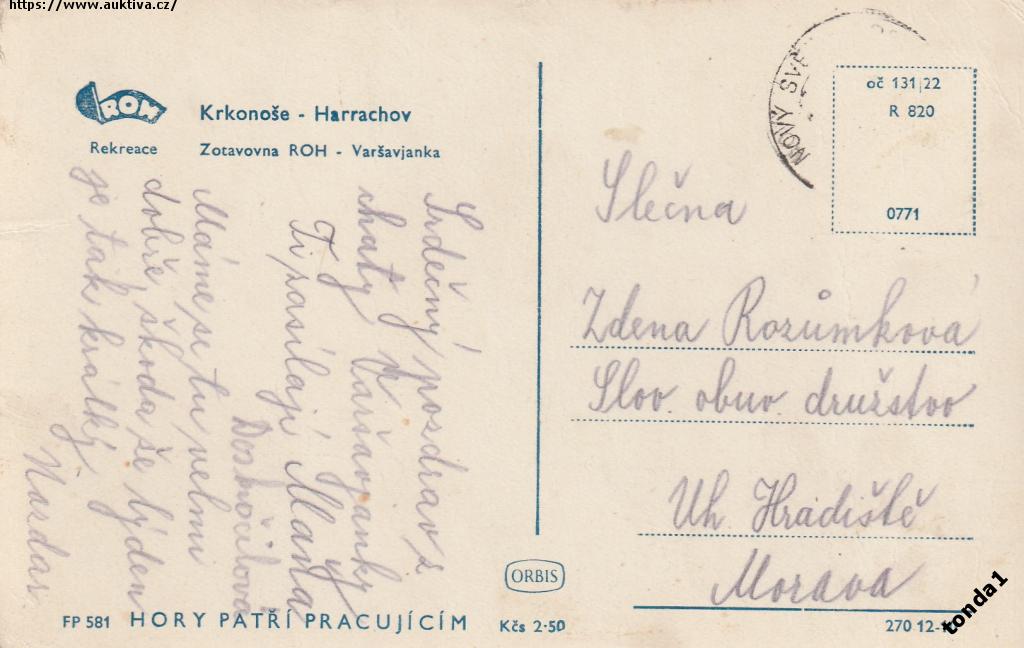 https://www.auktiva.cz/
ROH
Rekreace
Krkonoše - Harrachov
Zotavovna ROH - Varšavjanka
Srdečný pozdrav z
chaty Varšavjanky
Ti zasílají Maňa
Doskočilová
Máme se tu velmi
dobře, škoda še týden
je tak krátký
Nazdar
NOVÝ SVĚ
oč 131/22
R 820
0771
Slečna
Zdena Rozůmková
Slov. obuv. družstvo
Uh Hradiště
Morava
ORBIS
FP 581 HORY PATŘÍ PRACUJÍCÍM Kčs 2·50
270 12-
tonda1